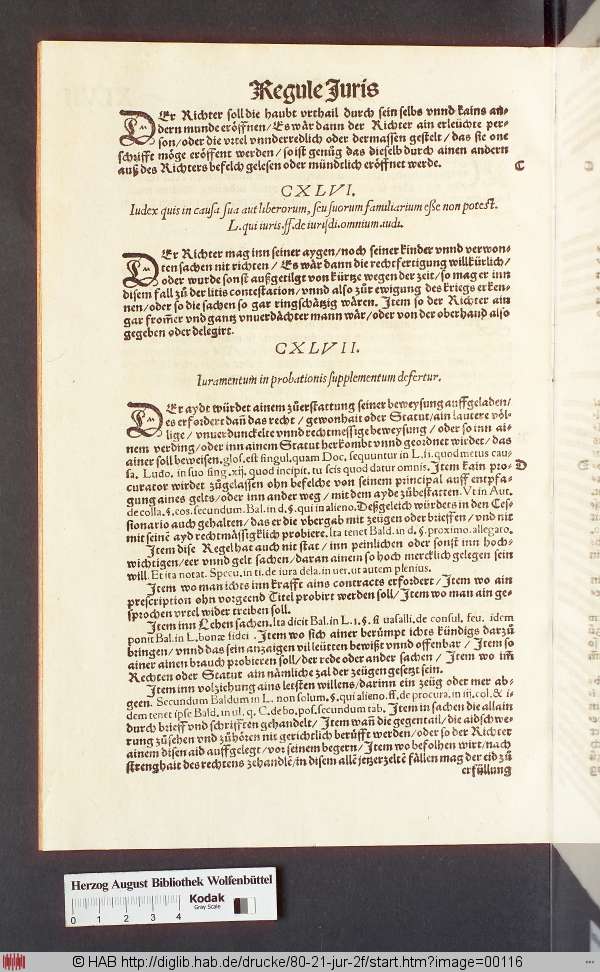 Regule Iuris
DEr Richter soll die haubt vrthail durch sein selbs vnnd kains an-
dern munde eröffnen/ Es wår dann der Richter ain erleüchte per-
son/ oder die vrtel vnnderredlich oder dermassen gestelt/ das sie one
schrifft möge eröffent werden/ so ist genůg das dieselb durch ainen andern
auß des Richters befelch gelesen oder mündtlich eröffnet werde.
C
CXLVI.
Iudex quis in causa sua aut liberorum, seu suorum familiarium esse non potest.
L. qui iuris. ff. de iurisdi. omnium. iudi.
DEr Richter mag inn seiner aygen/ noch seiner kinder vnnd verwon-
ten sachen nit richten/ Es wår dann die rechtfertigung willkürlich/
oder wurde sonst außgetilgt von kürtze wegen der zeit/ so mag er inn
disem fall zů der litis contestation/ vnnd also zůr ewigung des kriegs erken-
nen/ oder so die sachen so gar ringschåtzig wåren. Item so der Richter ain
gar from̃er vnd gantz vnuerdåchter mann wår/ oder von der oberhand also
gegeben oder delegirt.
CXLVII.
Iuramentum in probationis supplementum defertur.
DEr aydt würdet ainem zůerstattung seiner beweysung auffgeladen/
es erfordert dañ das recht/ gewonhait oder Statut/ ain lautere völ-
lige/ vnuerdunckelte vnnd rechtmessige beweysung/ oder so inn ai-
nem verding/ oder inn ainem Statut herkombt vnnd geordnet wirdet/ das
ainer soll beweisen. glos. est singul. quam Doc. sequuntur in L. ii. quod metus cau-
sa. Ludo. in suo sing. xij. quod incipit. tu scis quod datur omnis. Item kain pro-
D
curator wirdet zůgelassen ohn befelche von seinem principal auff entpfa-
gung aines gelts/ oder inn ander weg/ mit dem ayde zůbestatten. Vt in Aut.
de colla. §. eos. secundum. Bal. in d. §. qui in alieno. Deßgeleich würdets in den Ces-
sionario auch gehalten/ das er die vbergab mit zeügen oder brieffen/ vnd nit
mit seinẽ ayd rechtmåssigklich probiere. Ita tenet Bald. in d. §. proximo. allegato.
Item dise Regel hat auch nit stat/ inn peinlichen oder sonst inn hoch-
wichtigen/ eer vnnd gelt sachen/ daran ainem so hoch mercklich gelegen sein
will. Et ita notat. Specu. in ti. de iura dela. in uer. ut autem plenius.
Item wo man ichts inn krafft ains contracts erfordert/ Item wo ain
prescription ohn vorgeend Titel probirt werden soll/ Item wo man ain ge-
sprochen vrtel wider treiben soll.
Item inn Lehen sachen. Ita dicit Bal. in L. 1. §. si uasalli. de consul. feu. idem
ponit Bal. in L. bonæ fidei. Item wo sich ainer berümpt ichts kündigs darzů
bringen/ vnnd das sein anzaigen vil leütten bewißt vnnd offenbar/ Item so
ainer ainen brauch probieren soll/ der rede oder ander sachen/ Item wo im̃
Rechten oder Statut ain nåmliche zal der zeügen gesetzt sein.
Item inn volziehung ains letsten willens/ darinn ein zeüg oder mer ab-
geen. Secundum Baldum in L. non solum. §. qui alieno. ff. de procura. in iij. col. & i-
dem tenet ipse Bald. in ul. q. C. de bo. pos. secundum tab. Item in sachen die allain
durch brieff vnd schrifften gehandelt/ Item wañ die gegentail/ die aidschwe-
rung zůsehen vnd zůhören nit gerichtlich berůfft werden/ oder so der Richter
ainem disen aid auffgelegt/ vor seinem begern/ Item wo befolhen wirt/ nach
strenghait des rechtens zehandlẽ/ in disem allẽ jetzerzeltẽ fållen mag der eid zů
erfüllung
Herzog August Bibliothek Wolfenbüttel
0 1 2 3 4
Kodak
Gray Scale
© HAB http://diglib.hab.de/drucke/80-21-jur-2f/start.htm?image=00116